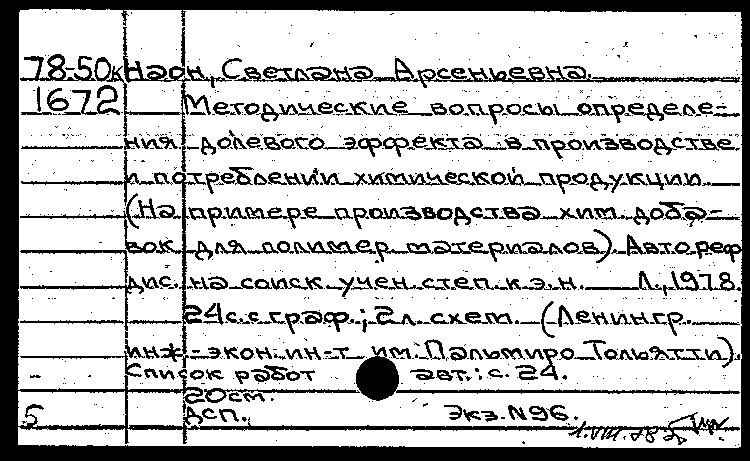 78-50к Наон, Светлана Арсеньевна.
1672 Методические вопросы определе-
ния долевого эффекта в производстве
и потреблении химической продукции.
(На примере производства хим. доба-
вок для полимер. материалов). Автореф
дис. на соиск. учен. степ. к.э.н. Л., 1978.
24с. с граф.; 2л. схем. (Ленингр.
инж.-экон. ин-т им. Пальмиро Тольятти).
Список работ авт.: с. 24.
20см.
5 ДСП. Экз. N96.